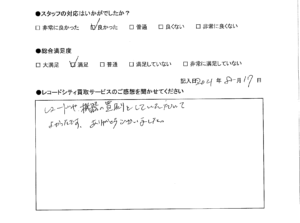 ●スタッフの対応はいかがでしたか?
□ 非常に良かった ☑ 良かった □ 普通 □ 良くない □ 非常に良くない
●総合満足度
□ 大満足 ☑ 満足 □ 普通 □ 満足していない □ 非常に満足していない
記入日 2024 年 8 月 17 日
●レコードシティ買取サービスのご感想を聞かせてください
レコードや機器の買取りをしていただいて
よかったです。ありがとうございました。